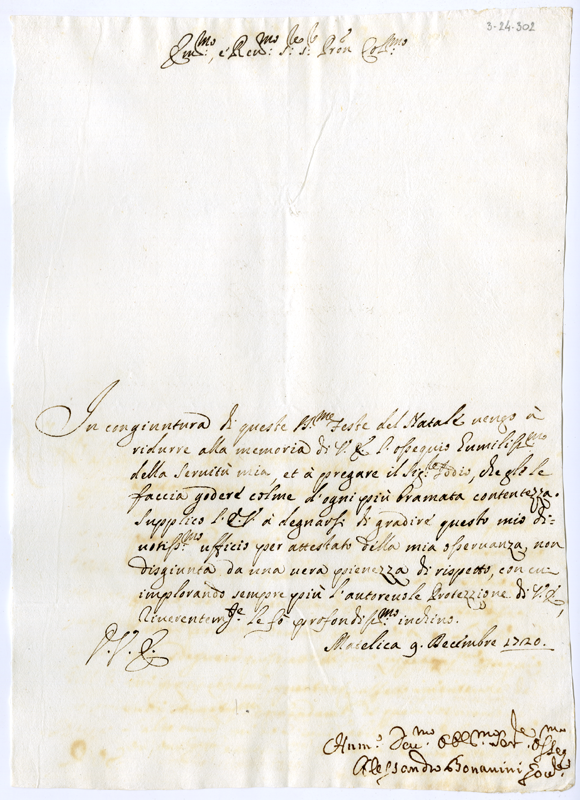 3-24-302
Em:mo, e Ren:mo Sig:re Sig:re Pron Col:mo
In congiuntura di queste SS:me Feste del Natale uengo à
ridurre alla memoria di V. E. l'ossequio humiliss:mo
della Seruitù mia, et à pregare il Sig:re Iddio, che gle le
faccia godere colme d'ogni più bramata contentezza.
Supplico l'E. V. à degnarsi di gradire questo mio di-
uotiss:mo ufficio per attestato della mia osseruanza non
disgiunta da una uera pienezza di rispetto, con cui
implorando sempre più l'autoreuole Protezzione di V. E.,
riuerentem:te le fò profondiss:mo inchino.
V. E.
Matelica 9. Decembre 1720.
Hum:mo Deu:mo Obblig:mo Ser:re Osseq:mo
Alessandro Bonauini Gou:re